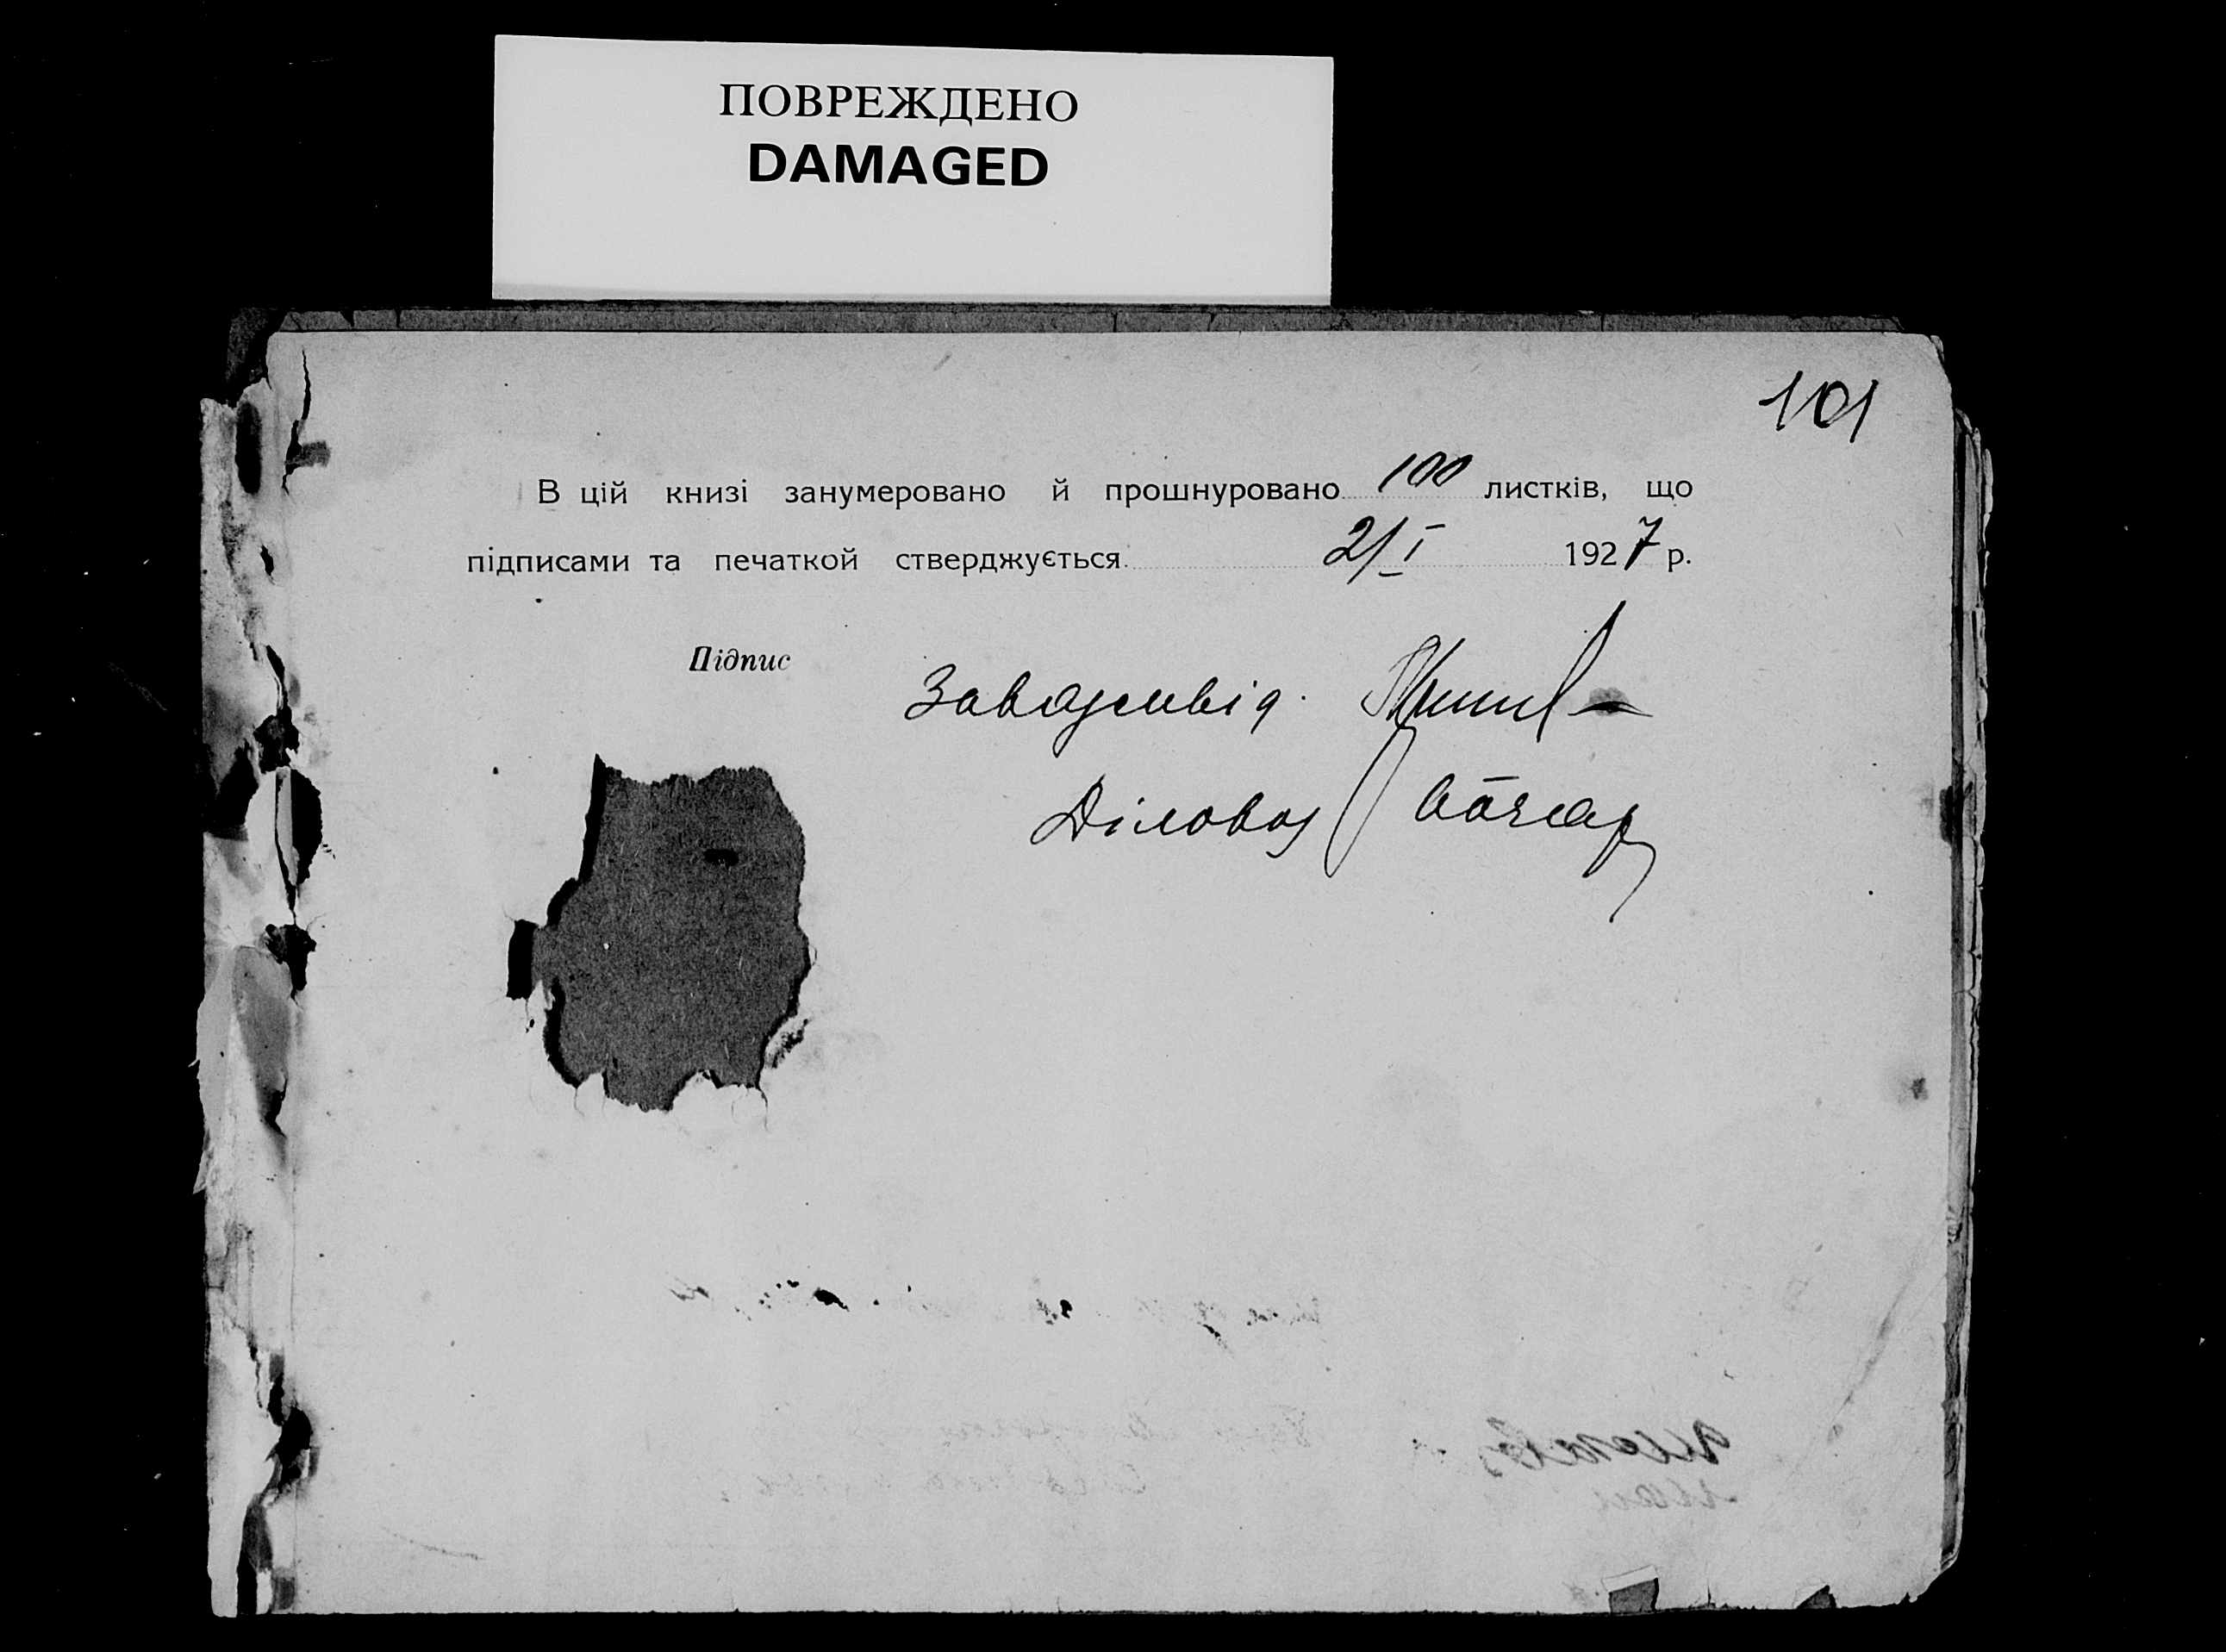 ПОВРЕЖДЕНО
DAMAGED
101
В цій книзі занумеровано й прошнуровано 100 листків, що
підписами та печаткой стверджується 2/I 1927 р.
Підпис
Завадмвід.
Діловод